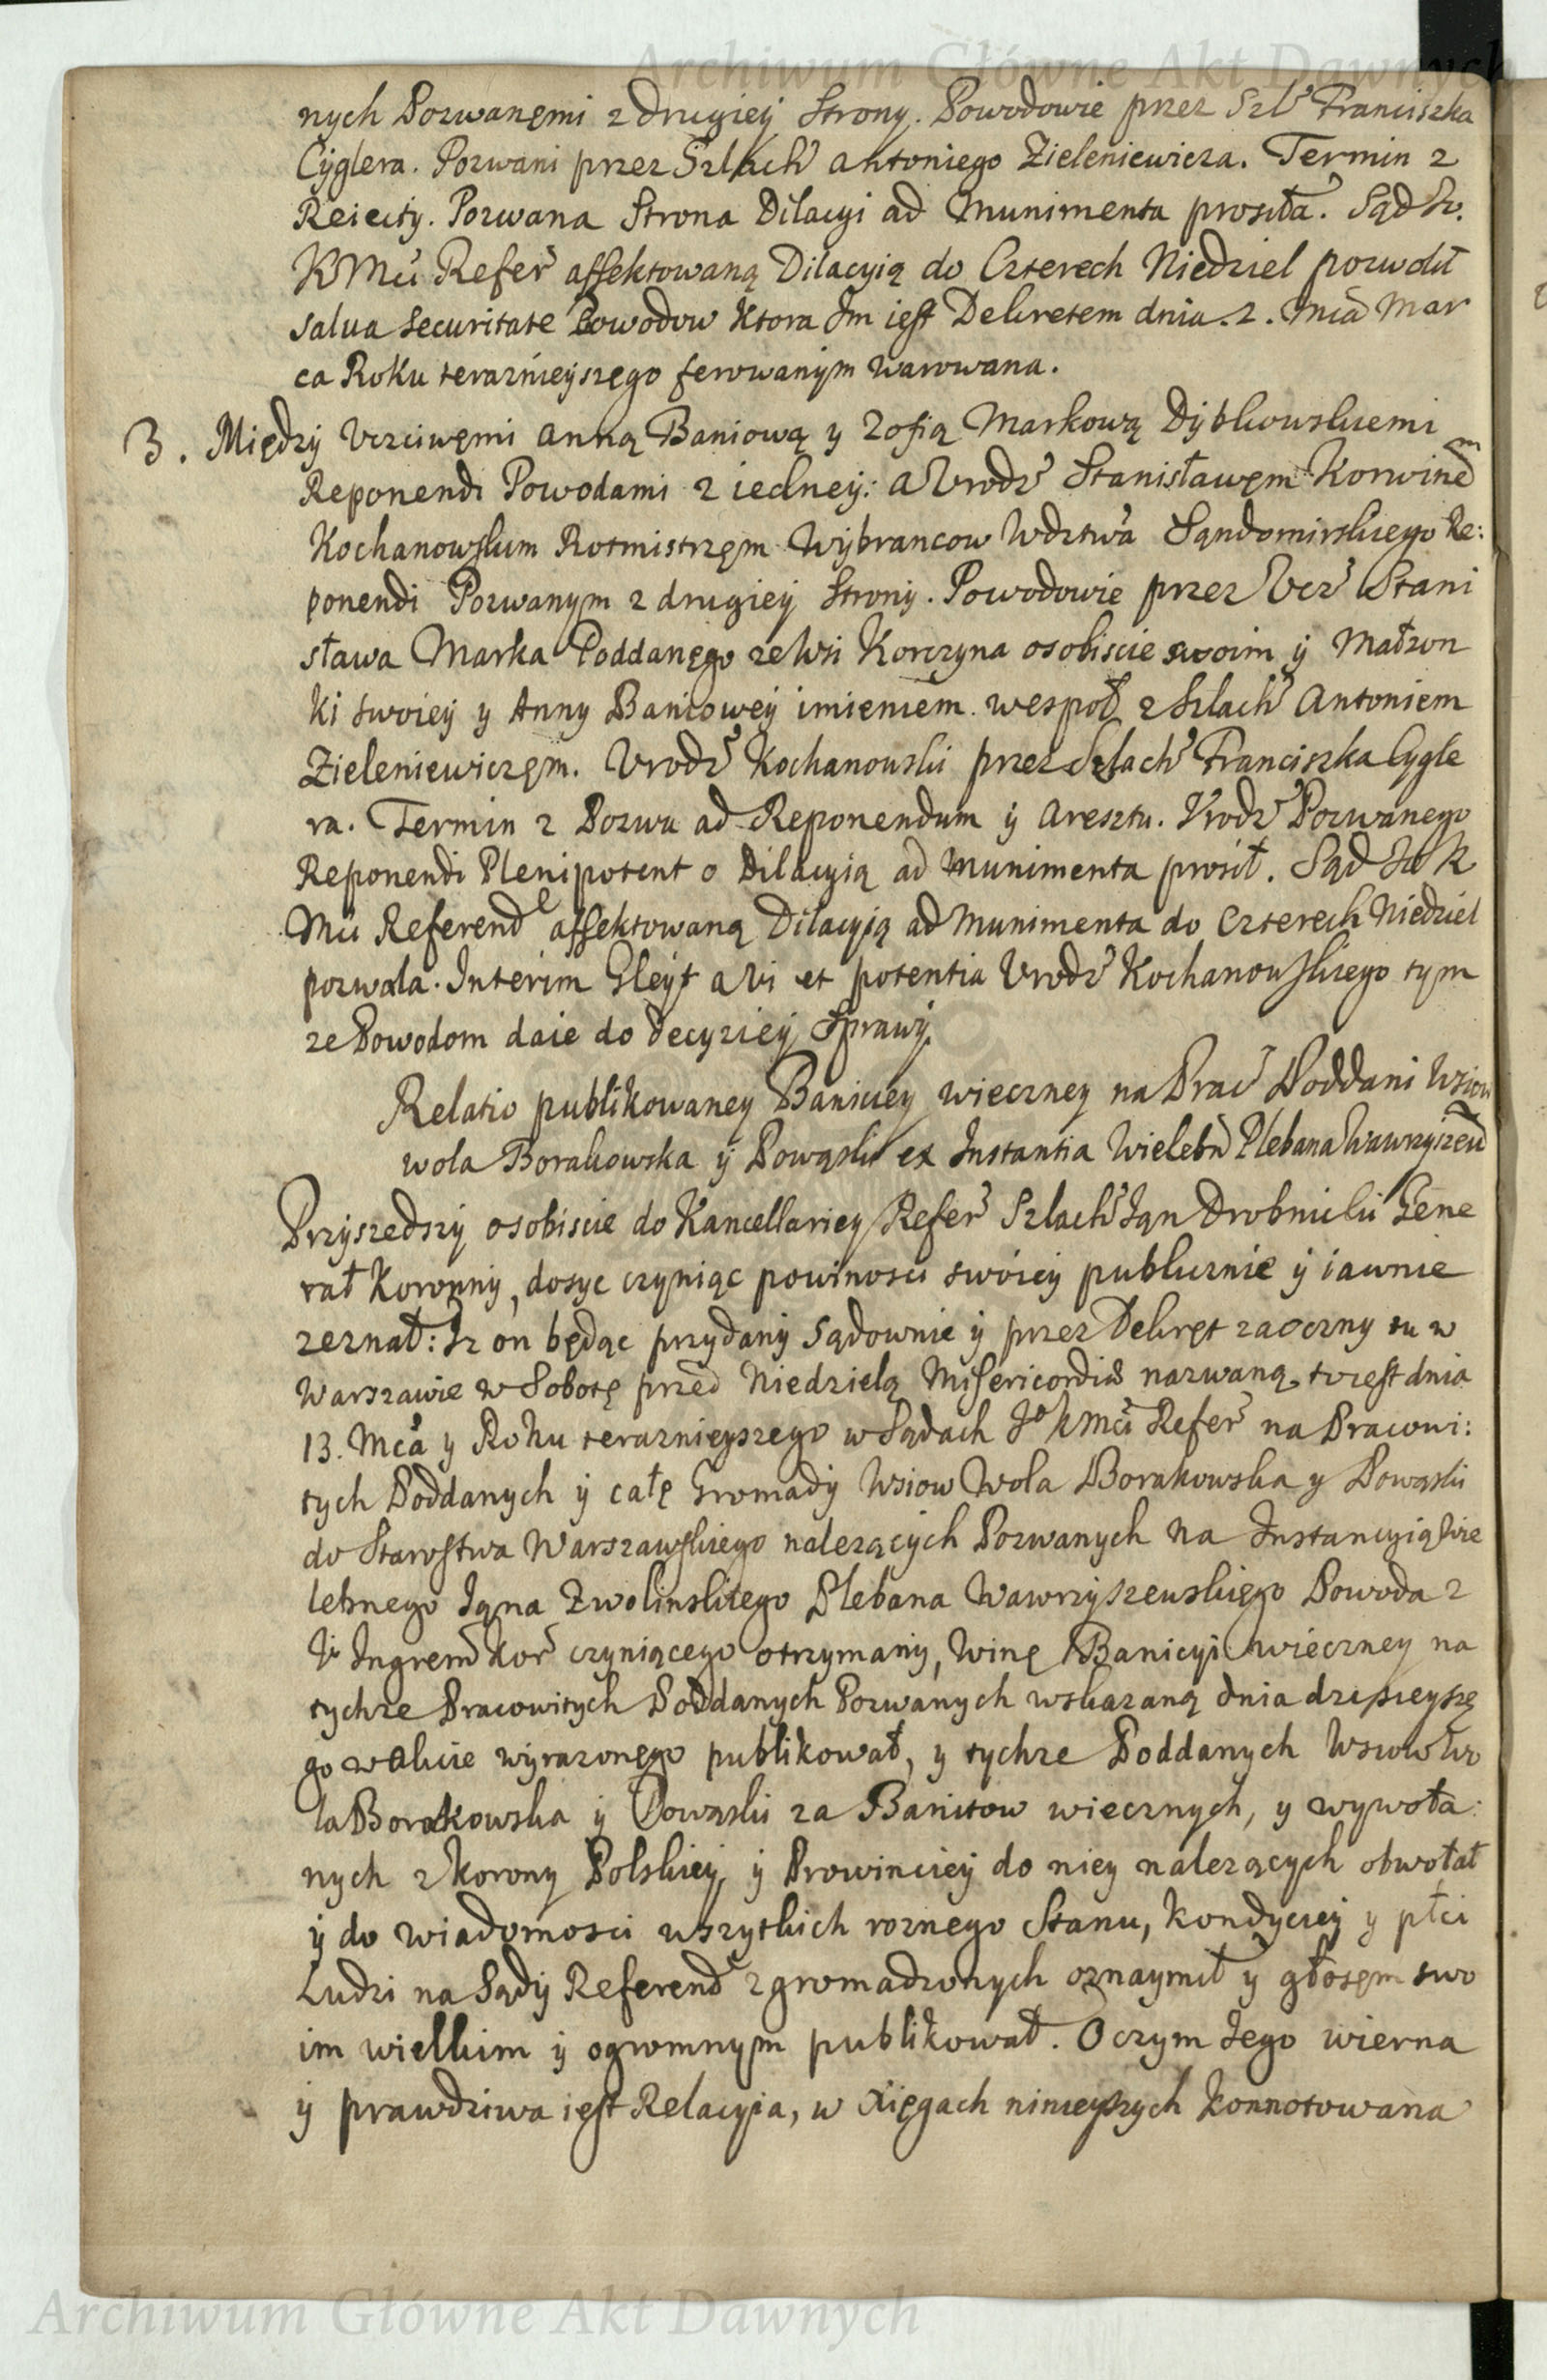 Archiwum Główne Akt Dawnych
nych Pozwanęmi z drugiey Strony. Powodowie przez Szl Franciszka
Cyglera. Pozwani przez Szlach Antoniego Zieleniewicza. Termin z
Reiecty. Pozwana Strona Dilacyi ad Munimenta prosiła. Sąd Jo.
KMci Refer affektowaną Dilacyią do Czterech Niedziel pozwolił
salua securitate Powodow ktora Im iest Dekretem dnia .2. Mca Mar
ca Roku teraznieyszego ferowanym warowana.
3. Między Uczciwęmi Anną Baniową y Zofią Markową Dybkowskiemi
Reponendi Powodami z iedney: a Urodz Stanisławęm Korwinem
Kochanowskim Rotmistrzęm Wybrancow Wdztwa Sandomirskiego Re:
ponendi Pozwanym z drugiey Strony. Powodowie przez Ucz Stani
sława Marka Poddanęgo ze Wsi Korczyna osobiscie swoim y Małzon
ki swoiey y Anny Baniowey imieniem wespoł z Szlach Antoniem
Zieleniewiczęm. Urodz Kochanowski przez Szlach Franciszka Cygle
ra. Termin z Pozwu ad Reponendum y Aresztu. Urodz Pozwanego
Reponendi Plenipotent o Dilacyią ad Munimenta prosił. Sąd Jo K
Mci Referend affektowaną Dilacyią ad Munimenta do Czterech Niedziel
pozwala. Interim Gleyt a Vi et potentia Urodz Kochanowskiego tym
ze Powodom daie do decyziey Sprawy.
Relatio publikowaney Banicyey wieczney na Prac Poddani Wsiow
Wola Borakowska y Powąski ex Instantia Wielebn Plebana Wawrzyszew
Przyszedszy osobiscie do Kancellaryey Refer Szlach Ian Drobnicki Gene
rał Koronny, dosyc czyniąc powinosci swoiey publicznie y iawnie
zeznał: Iz on będąc przydany Sądownie y przez Dekręt zaoczny tu w
Warszawie w Sobotę przed Niedzielą Misericordia nazwaną, to iest dnia
13. Mca y Roku teraznieyszego w Sądach Jo KMci Refer na Pracowi:
tych Poddanych y całę Gromady Wsiow Wola Borakowska y Powąski
do Starostwa Warszawskiego nalezących Pozwanych na Instancyią Wie
lebnego Iana Zwolinskiego Plebana Wawrzyszewskiego Powoda z
Ingrem Kor czyniącego otrzymany, Winę Banicyi wieczney na
tychze Pracowitych Poddanych Pozwanych wskazaną dnia dzisieyszę
go w Akcie wyrazonęgo publikował, y tychze Poddanych Wsiow Wo
la Borakowska y Powąski za Banitow wiecznych, y wywoła:
nych z Korony Polskiey y Prowinciey do niey nalezących obwołał
y do wiadomosci wszytkich roznego Stanu, kondyciey y płci
Ludzi na Sądy Referend zgromadzonych oznaymił y głosęm swo
im wielkim y ogromnym publikował. O czym Jego wierna
y prawdziwa iest Relacyia, w xięgach ninieyszych konnotowana
Archiwum Główne Akt Dawnych